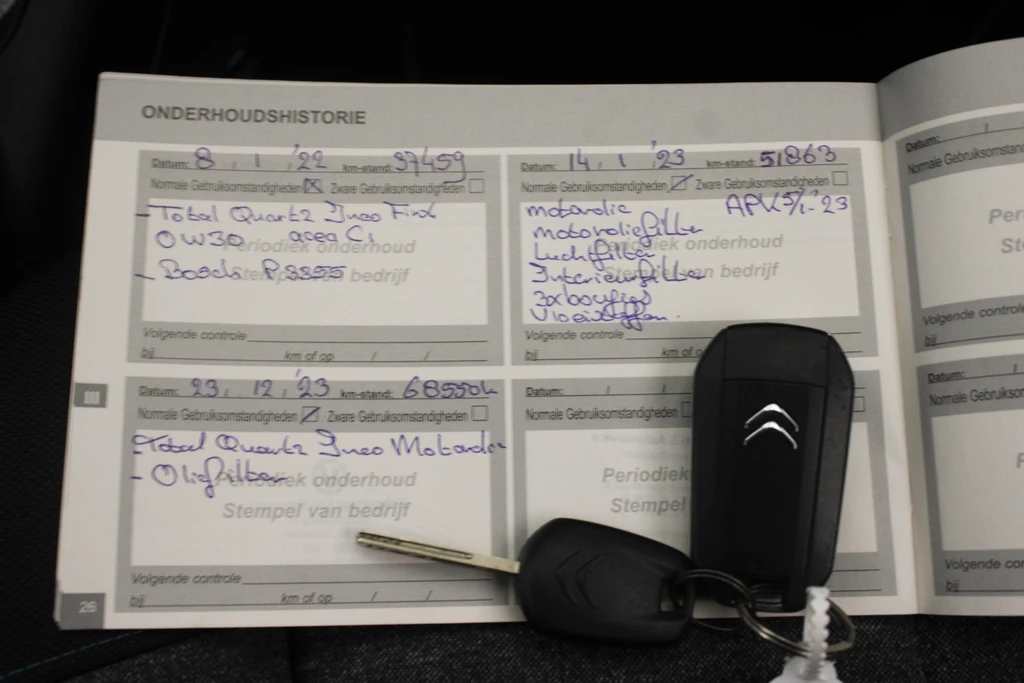 ONDERHOUDSHISTORIE
Datum: 8 / 1 / '22 km-stand: 37459
Normale Gebruiksomstandigheden Zware Gebruiksomstandigheden
- Total Quartz Ineo First
0W30 acea C1
Periodiek onderhoud
- Bosch P3355
Stempel van bedrijf
Volgende controle
bij km of op / /
Datum: 14 / 1 / '23 km-stand: 51863
Normale Gebruiksomstandigheden Zware Gebruiksomstandigheden
motorolie APK 5/1-'23
motoroliefilter
Periodiek onderhoud
Luchtfilter
Interieurfilter
Stempel van bedrijf
3x bougies
Vloeistoffen.
Volgende controle
bij km of o
Datum: 23 / 12 / '23 km-stand: 68550k
Normale Gebruiksomstandigheden Zware Gebruiksomstandigheden
- Total Quartz Ineo Motorolie
- Oliefilter
Periodiek onderhoud
Stempel van bedrijf
Volgende controle
bij km of op / /
Datum: / /
Normale Gebruiksomstandigheden
Periodiek
Stempel
Datum: /
Normale Gebruiksomstan
Per
St
Volgende con
bij
Datum: /
Normale Gebruiksomstan
Volgende co
bij
III
26